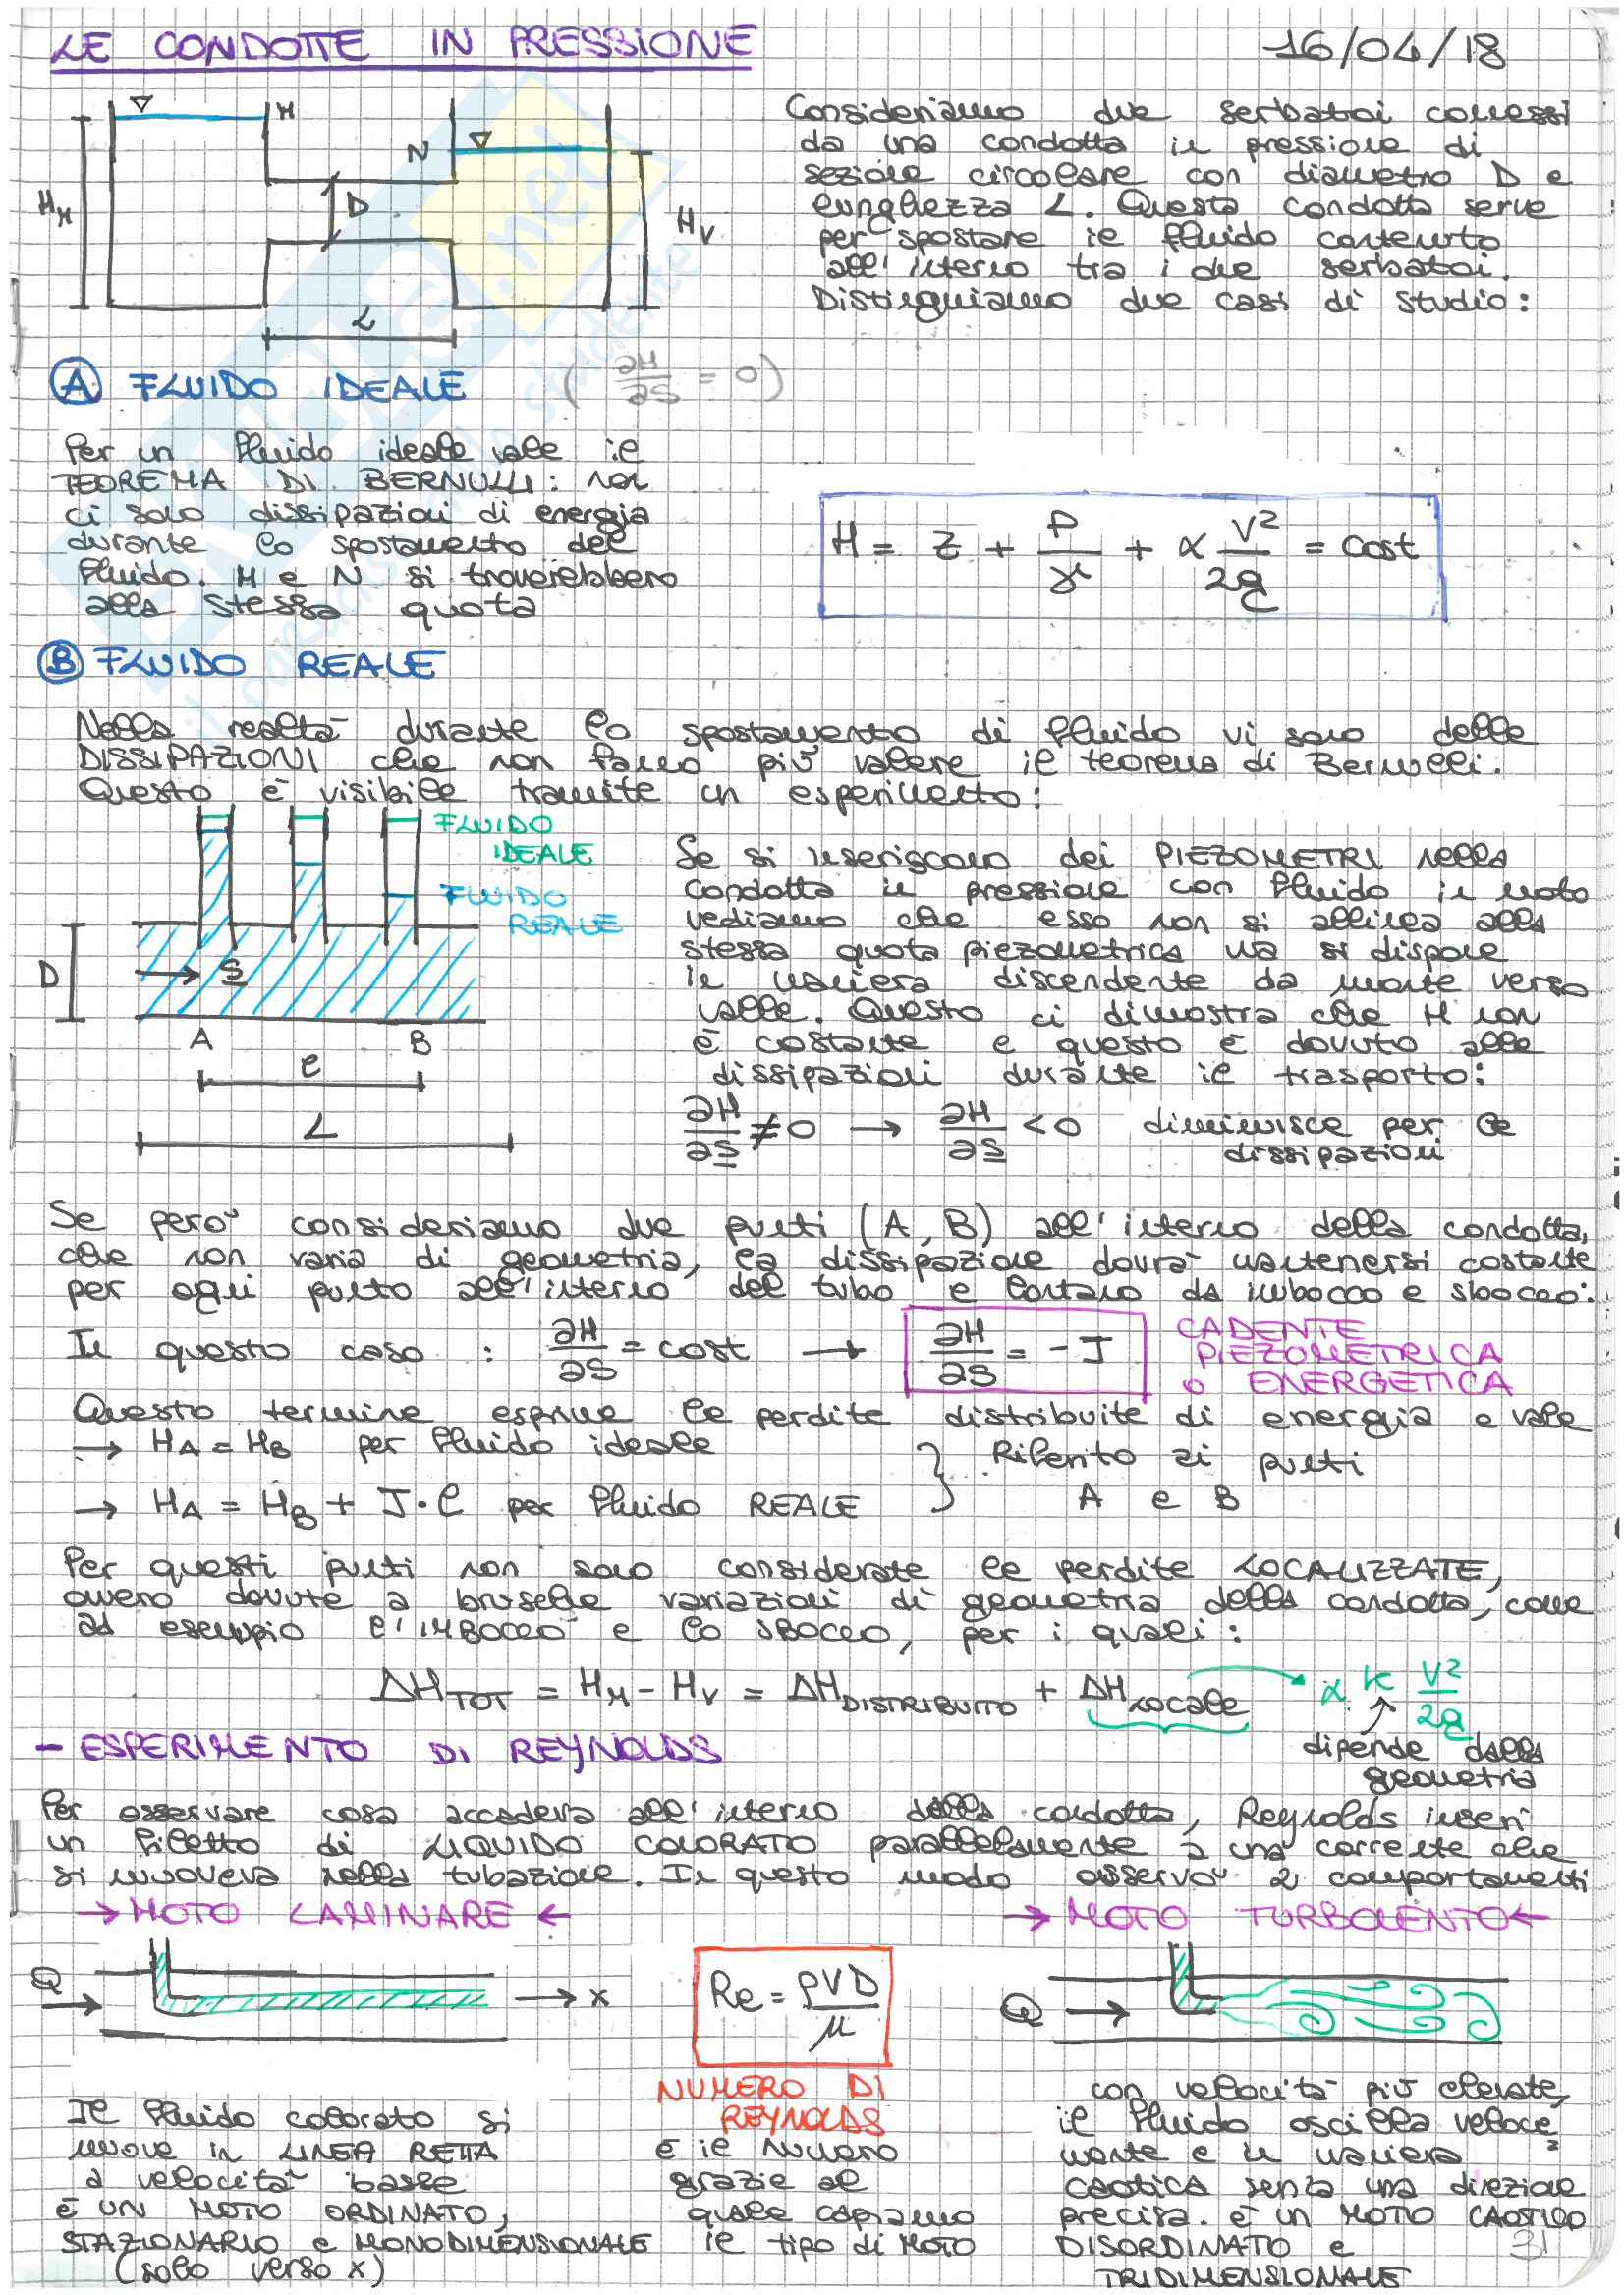 LE CONDOTTE IN PRESSIONE
16/04/18
M
N
D
H_M
H_V
L
Consideriamo due serbatoi connessi
da una condotta in pressione di
sezione circolare con diametro D e
lunghezza L. Questa condotta serve
per spostare il fluido contenuto
all'interno tra i due serbatoi.
Distinguiamo due casi di studio:
A FLUIDO IDEALE (∂H/∂S = 0)
Per un fluido ideale vale il
TEOREMA DI BERNULLI: non
ci sono dissipazioni di energia
durante lo spostamento del
fluido. M e N si troverebbero
alla stessa quota
H = z + P/γ + α V²/2g = cost
B FLUIDO REALE
Nella realtà durante lo spostamento di fluido vi sono delle
DISSIPAZIONI che non fanno più valere il teorema di Bernulli.
Questo è visibile tramite un esperimento:
FLUIDO
IDEALE
FLUIDO
REALE
D
S
A
B
l
L
Se si inseriscono dei PIEZOMETRI nella
condotta in pressione con fluido in moto
vediamo che esso non si allinea alla
stessa quota piezometrica ma si dispone
in maniera discendente da monte verso
valle. Questo ci dimostra che H non
è costante e questo è dovuto alle
dissipazioni durante il trasporto:
∂H/∂S ≠ 0 → ∂H/∂S < 0 diminuisce per le
dissipazioni
Se però consideriamo due punti (A, B) all'interno della condotta,
che non varia di geometria, la dissipazione dovrà mantenersi costante
per ogni punto all'interno del tubo e lontano da imbocco e sbocco:
In questo caso : ∂H/∂S = cost → ∂H/∂S = - J
CADENTE
PIEZOMETRICA
o ENERGETICA
Questo termine esprime le perdite distribuite di energia e vale
→ H_A = H_B per fluido ideale
→ H_A = H_B + J · l per fluido REALE
Riferito ai punti
A e B
Per questi punti non sono considerate le perdite LOCALIZZATE,
ovvero dovute a brusche variazioni di geometria della condotta, come
ad esempio l'IMBOCCO e lo SBOCCO, per i quali:
ΔH_TOT = H_M - H_V = ΔH_DISTRIBUITO + ΔH_LOCALE → α K V²/2g
dipende dalla
geometria
- ESPERIMENTO DI REYNOLDS
Per osservare cosa accadeva all'interno della condotta, Reynolds inserì
un filetto di LIQUIDO COLORATO parallelamente a una corrente che
si muoveva nella tubazione. In questo modo osservò 2 comportamenti
→ MOTO LAMINARE ←
→ MOTO TURBOLENTO ←
Q
x
Re = ρVD/μ
Q
NUMERO DI
REYNOLDS
è il numero
grazie al
quale capiamo
il tipo di MOTO
Il fluido colorato si
muove in LINEA RETTA
a velocità basse
è UN MOTO ORDINATO,
STAZIONARIO e MONODIMENSIONALE
(solo verso x)
con velocità più elevate,
il fluido oscilla veloce=
mente e in maniera
caotica senza una direzione
precisa. è un MOTO CAOTICO
DISORDINATO e
TRIDIMENSIONALE
31